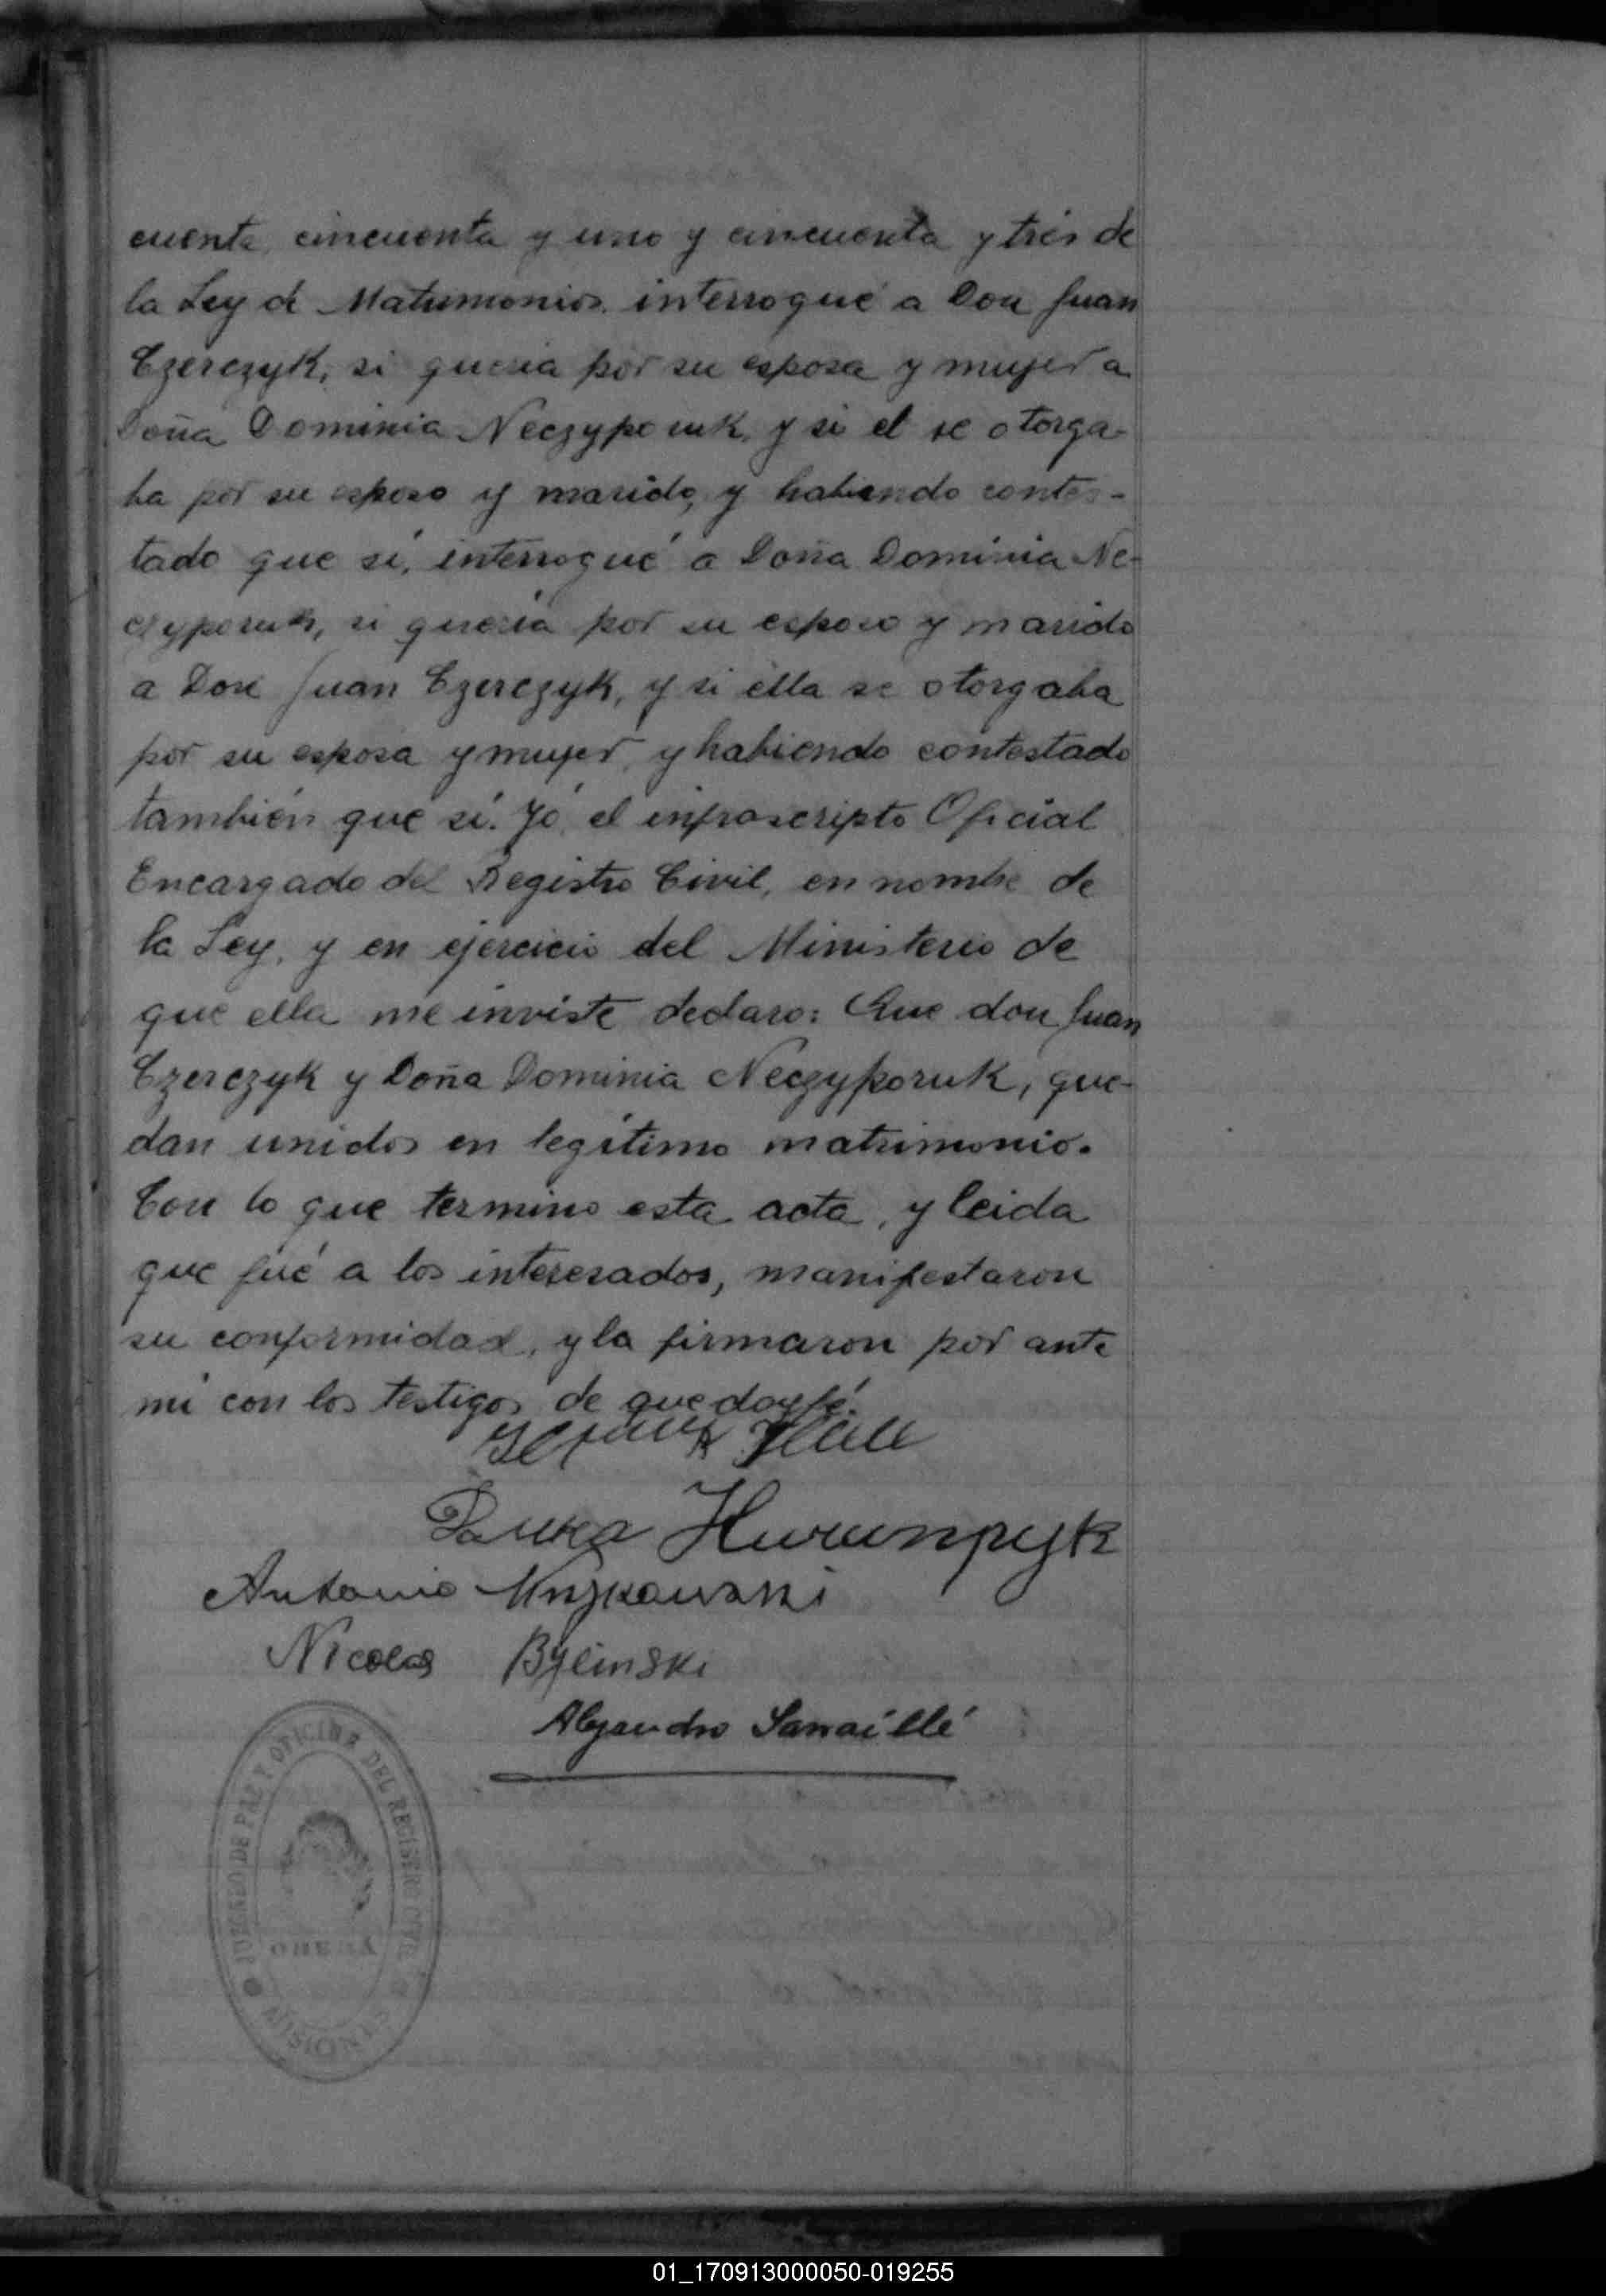 cuenta, cincuenta y uno y cincuenta y trés de
la Ley de Matrimonios. interrogué a Don Juan
Czerczyk, si queria por su esposa y mujer a
Doña Dominia Neczyporuk, y si el se otorga-
ba por su esposo y marido, y habiendo contes-
tado que sí, interrogué a Doña Dominia Ne-
czyporuk, si queria por su esposo y marido
a Don Juan Czerczyk, y si ella se otorgaba
por su esposa y mujer, y habiendo contestado
también que sí. Yó, el infrascripto Oficial
Encargado del Registro Civil, en nombre de
la Ley, y en ejercicio del Ministerio de
que ella me inviste declaro: Que don Juan
Czerczyk y Doña Dominia Neczyporuk, que-
dan unidos en legítimo matrimonio.
Con lo que termino esta acta, y leida
que fué a los interesados, manifestaron
su conformidad, y la firmaron por ante
mí con los testigos de que doy fé.
Antonio
Nicolas Bylinski
Alejandro
JUZGADO DE PAZ Y OFICINA DEL REGISTRO CIVIL
MISIONES
01_170913000050-019255